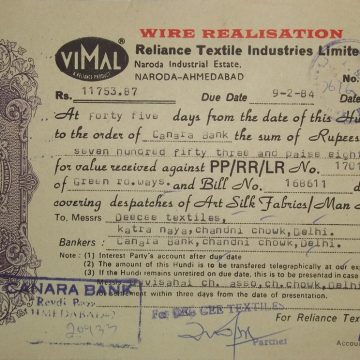 WIRE REALISATION
VIMAL
A RELIANCE PRODUCT
Reliance Textile Industries Limite
Naroda Industrial Estate,
NARODA-AHMEDABAD
No.
Rs. 11753.87 Due Date 9-2-84 Date
At forty five days from the date of this H
to the order of Canara Bank the sum of Rupees
seven hundred fifty three and paise eight
for value received against PP/RR/LR No. 1701
of Green rd.ways. and Bill No. 168611 d
covering despatches of Art Silk Fabrics/Man
To Messrs Deecee textiles,
katra naya, chandni chowk, Delhi.
Bankers : Canara Bank, chandni chowk, Delhi.
Note : (1) Interest Party's account after due date
(2) The amount of this Hundi is to be transferred telegraphically at our ex
(3) If the Hundi remains unretired on due date, this is to be presented in case
ch. asso, ch. chowk, Delhi
within three days from the date of presentation.
CANARA BANK
Revdi Bazar
AHMEDABAD
For DEE CEE TEXTILES
Partner
For Reliance Te
Accou